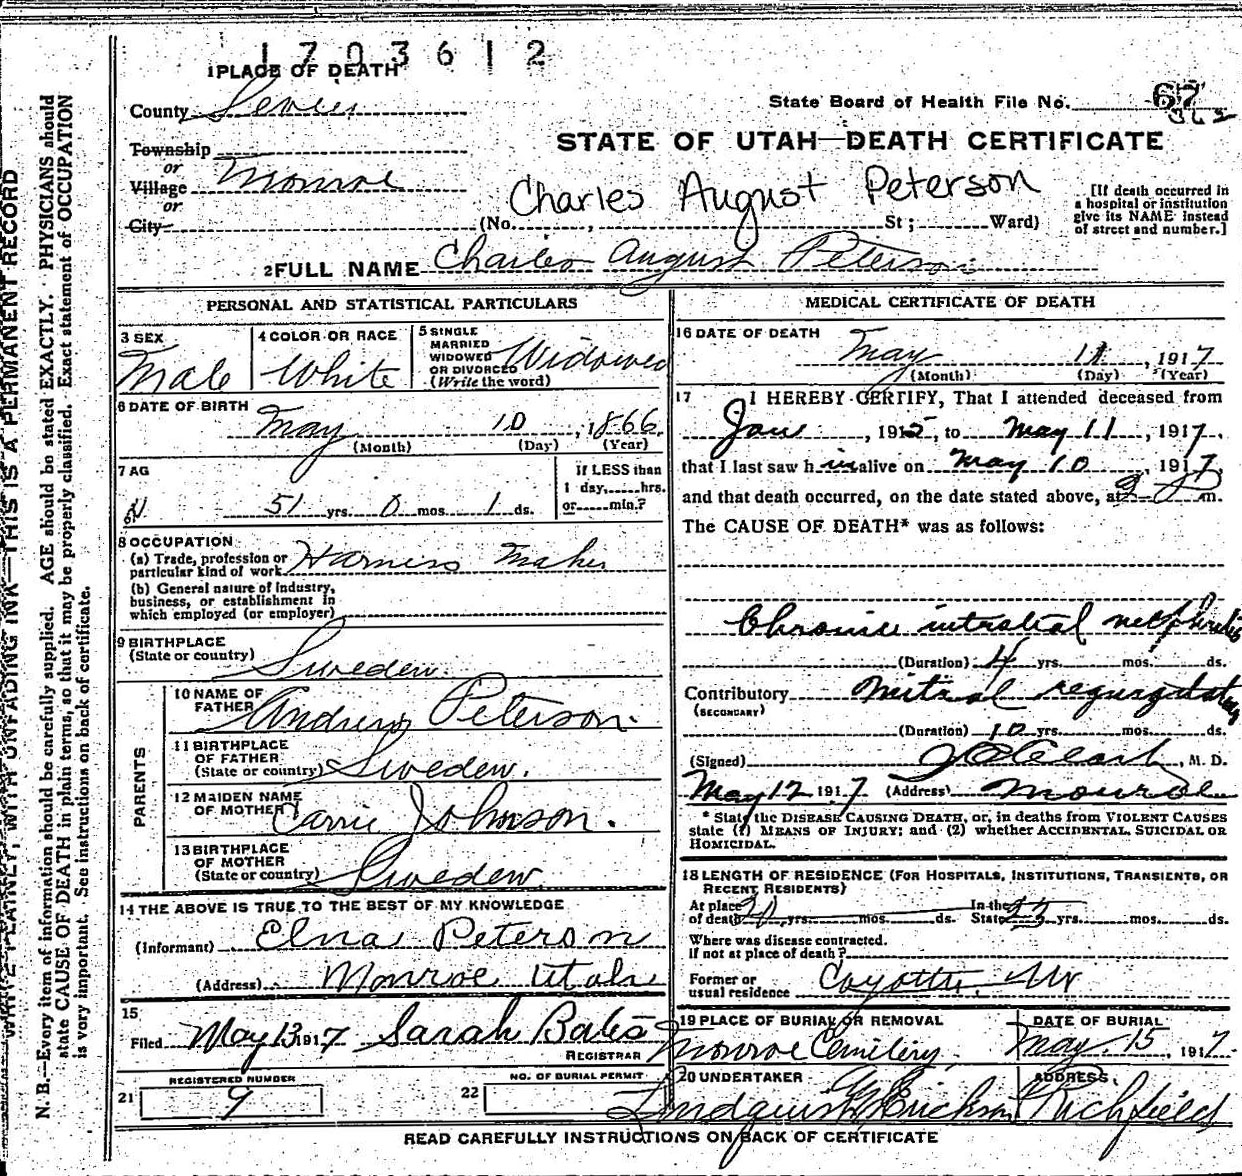 1703612
1 PLACE OF DEATH
County Sevier
State Board of Health File No. 67
362
STATE OF UTAH—DEATH CERTIFICATE
Township
or
Village Monroe
or
City
Charles August Peterson
(No. , St ; Ward)
[If death occurred in
a hospital or institution
give its NAME instead
of street and number.]
2 FULL NAME Charles August Peterson
PERSONAL AND STATISTICAL PARTICULARS
3 SEX
Male
4 COLOR OR RACE
White
5 SINGLE
MARRIED
WIDOWED
OR DIVORCED
(Write the word)
Widowed
6 DATE OF BIRTH
May 10, 1866
(Month) (Day) (Year)
7 AG
51 yrs. 0 mos. 1 ds.
If LESS than
1 day, hrs.
or min.?
8 OCCUPATION
(a) Trade, profession or
particular kind of work Harness Maker
(b) General nature of industry,
business, or establishment in
which employed (or employer)
9 BIRTHPLACE
(State or country) Sweden.
PARENTS
10 NAME OF
FATHER Andrew Peterson.
11 BIRTHPLACE
OF FATHER
(State or country) Sweden.
12 MAIDEN NAME
OF MOTHER Carrie Johnson.
13 BIRTHPLACE
OF MOTHER
(State or country) Sweden.
14 THE ABOVE IS TRUE TO THE BEST OF MY KNOWLEDGE
(Informant) Elna Peterson
(Address) Monroe Utah
15
Filed May 13 1917 Sarah Bates
REGISTRAR
REGISTERED NUMBER
21 9
NO. OF BURIAL PERMIT
22
MEDICAL CERTIFICATE OF DEATH
16 DATE OF DEATH
May 11, 1917
(Month) (Day) (Year)
17 I HEREBY CERTIFY, That I attended deceased from
Jan, 1915, to May 11, 1917,
that I last saw h im alive on May 10, 1917,
and that death occurred, on the date stated above, at m.
The CAUSE OF DEATH* was as follows:
Chronic intrstial nethpheritis
(Duration) 4 yrs. mos. ds.
Contributory Mitral regurgitation
(SECONDARY)
(Duration) 10 yrs. mos. ds.
(Signed) , M. D.
May 12 1917 (Address) Monroe
* State the DISEASE CAUSING DEATH, or, in deaths from VIOLENT CAUSES
state (1) MEANS OF INJURY; and (2) whether ACCIDENTAL, SUICIDAL OR
HOMICIDAL.
18 LENGTH OF RESIDENCE (FOR HOSPITALS, INSTITUTIONS, TRANSIENTS, OR
RECENT RESIDENTS)
At place In the
of death yrs. mos. ds. State yrs. mos. ds.
Where was disease contracted.
If not at place of death?
Former or
usual residence
19 PLACE OF BURIAL OR REMOVAL
Monroe Cemitery.
DATE OF BURIAL
May. 15, 1917
20 UNDERTAKER
Lindquist Erickson
ADDRESS
Richfield
READ CAREFULLY INSTRUCTIONS ON BACK OF CERTIFICATE
WRITE PLAINLY, WITH UNFADING INK—THIS IS A PERMANENT RECORD
N. B.—Every item of information should be carefully supplied. AGE should be stated EXACTLY. PHYSICIANS should
state CAUSE OF DEATH in plain terms, so that it may be properly classified. Exact statement of OCCUPATION
is very important. See instructions on back of certificate.